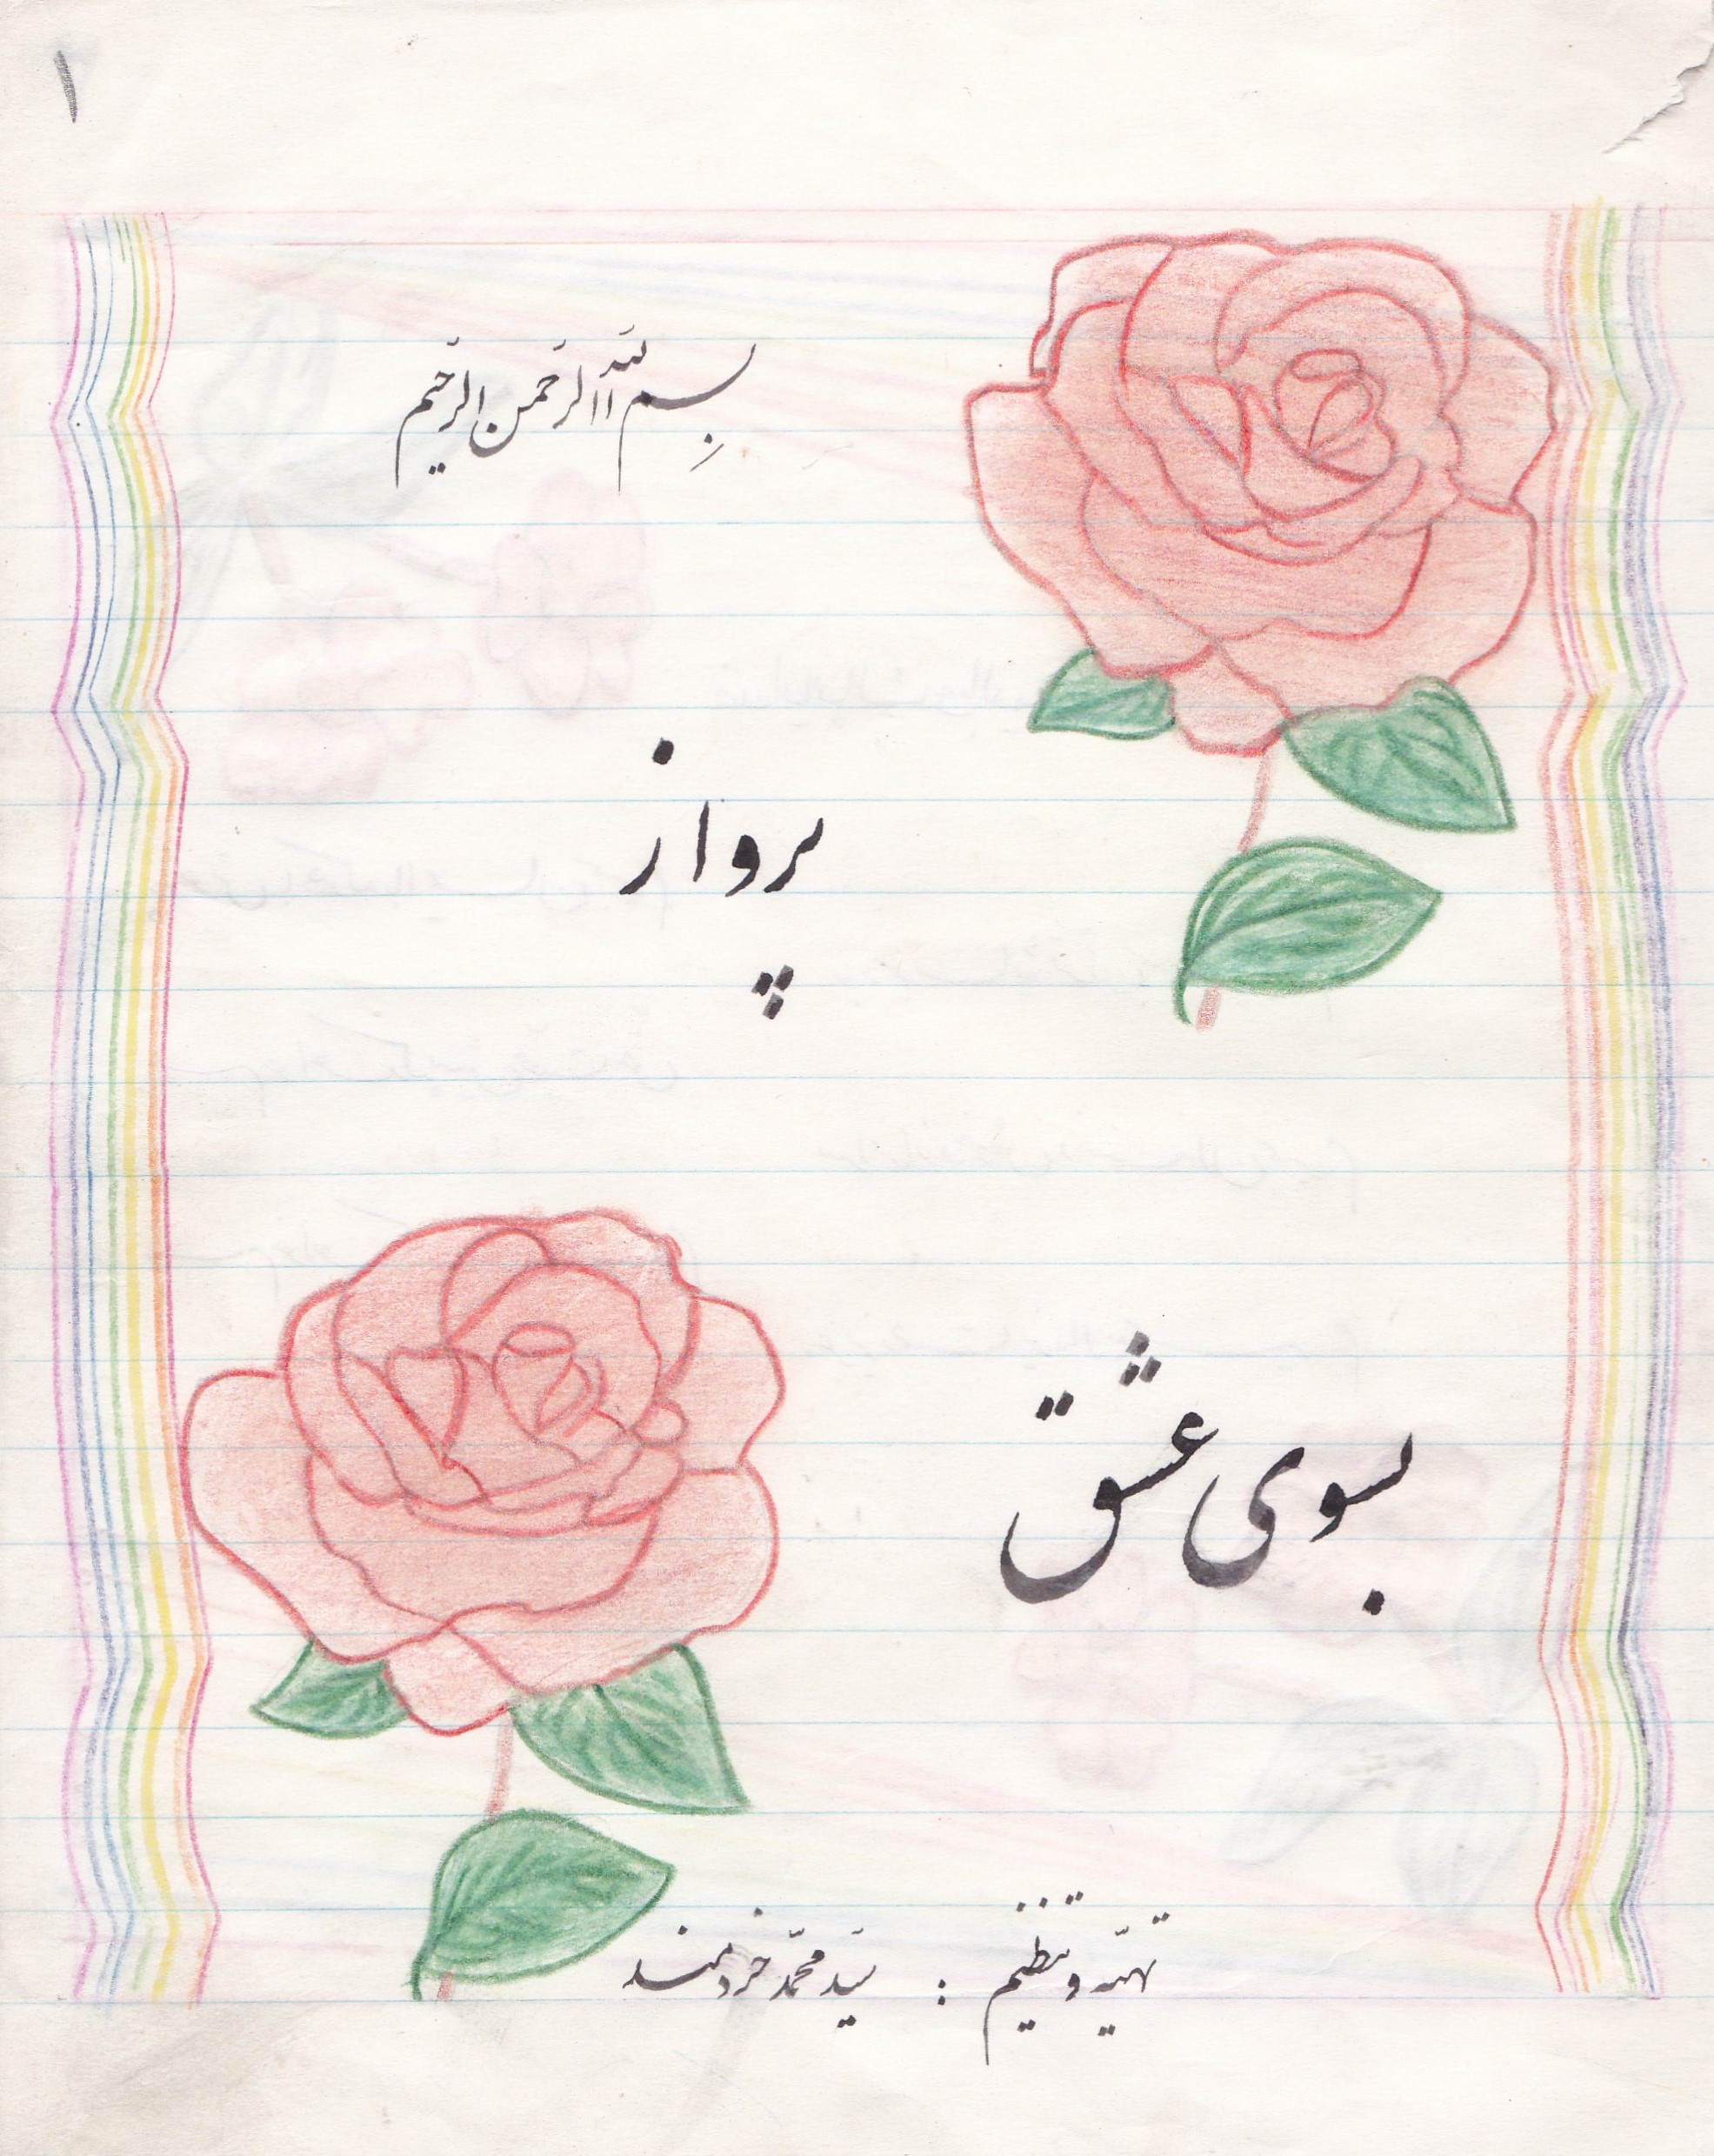 ۱
بسم الله الرحمن الرحیم
پرواز
بسوی عشق
تهیّه و تنظیم : سیّد محمّد خردمند